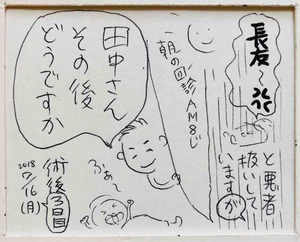 長友〜
と悪者
扱いして
いますが
朝の回診AM8じ
田中さん
その後
どうですか
ふぁ〜
術後3日目
2018
7/16
(月)